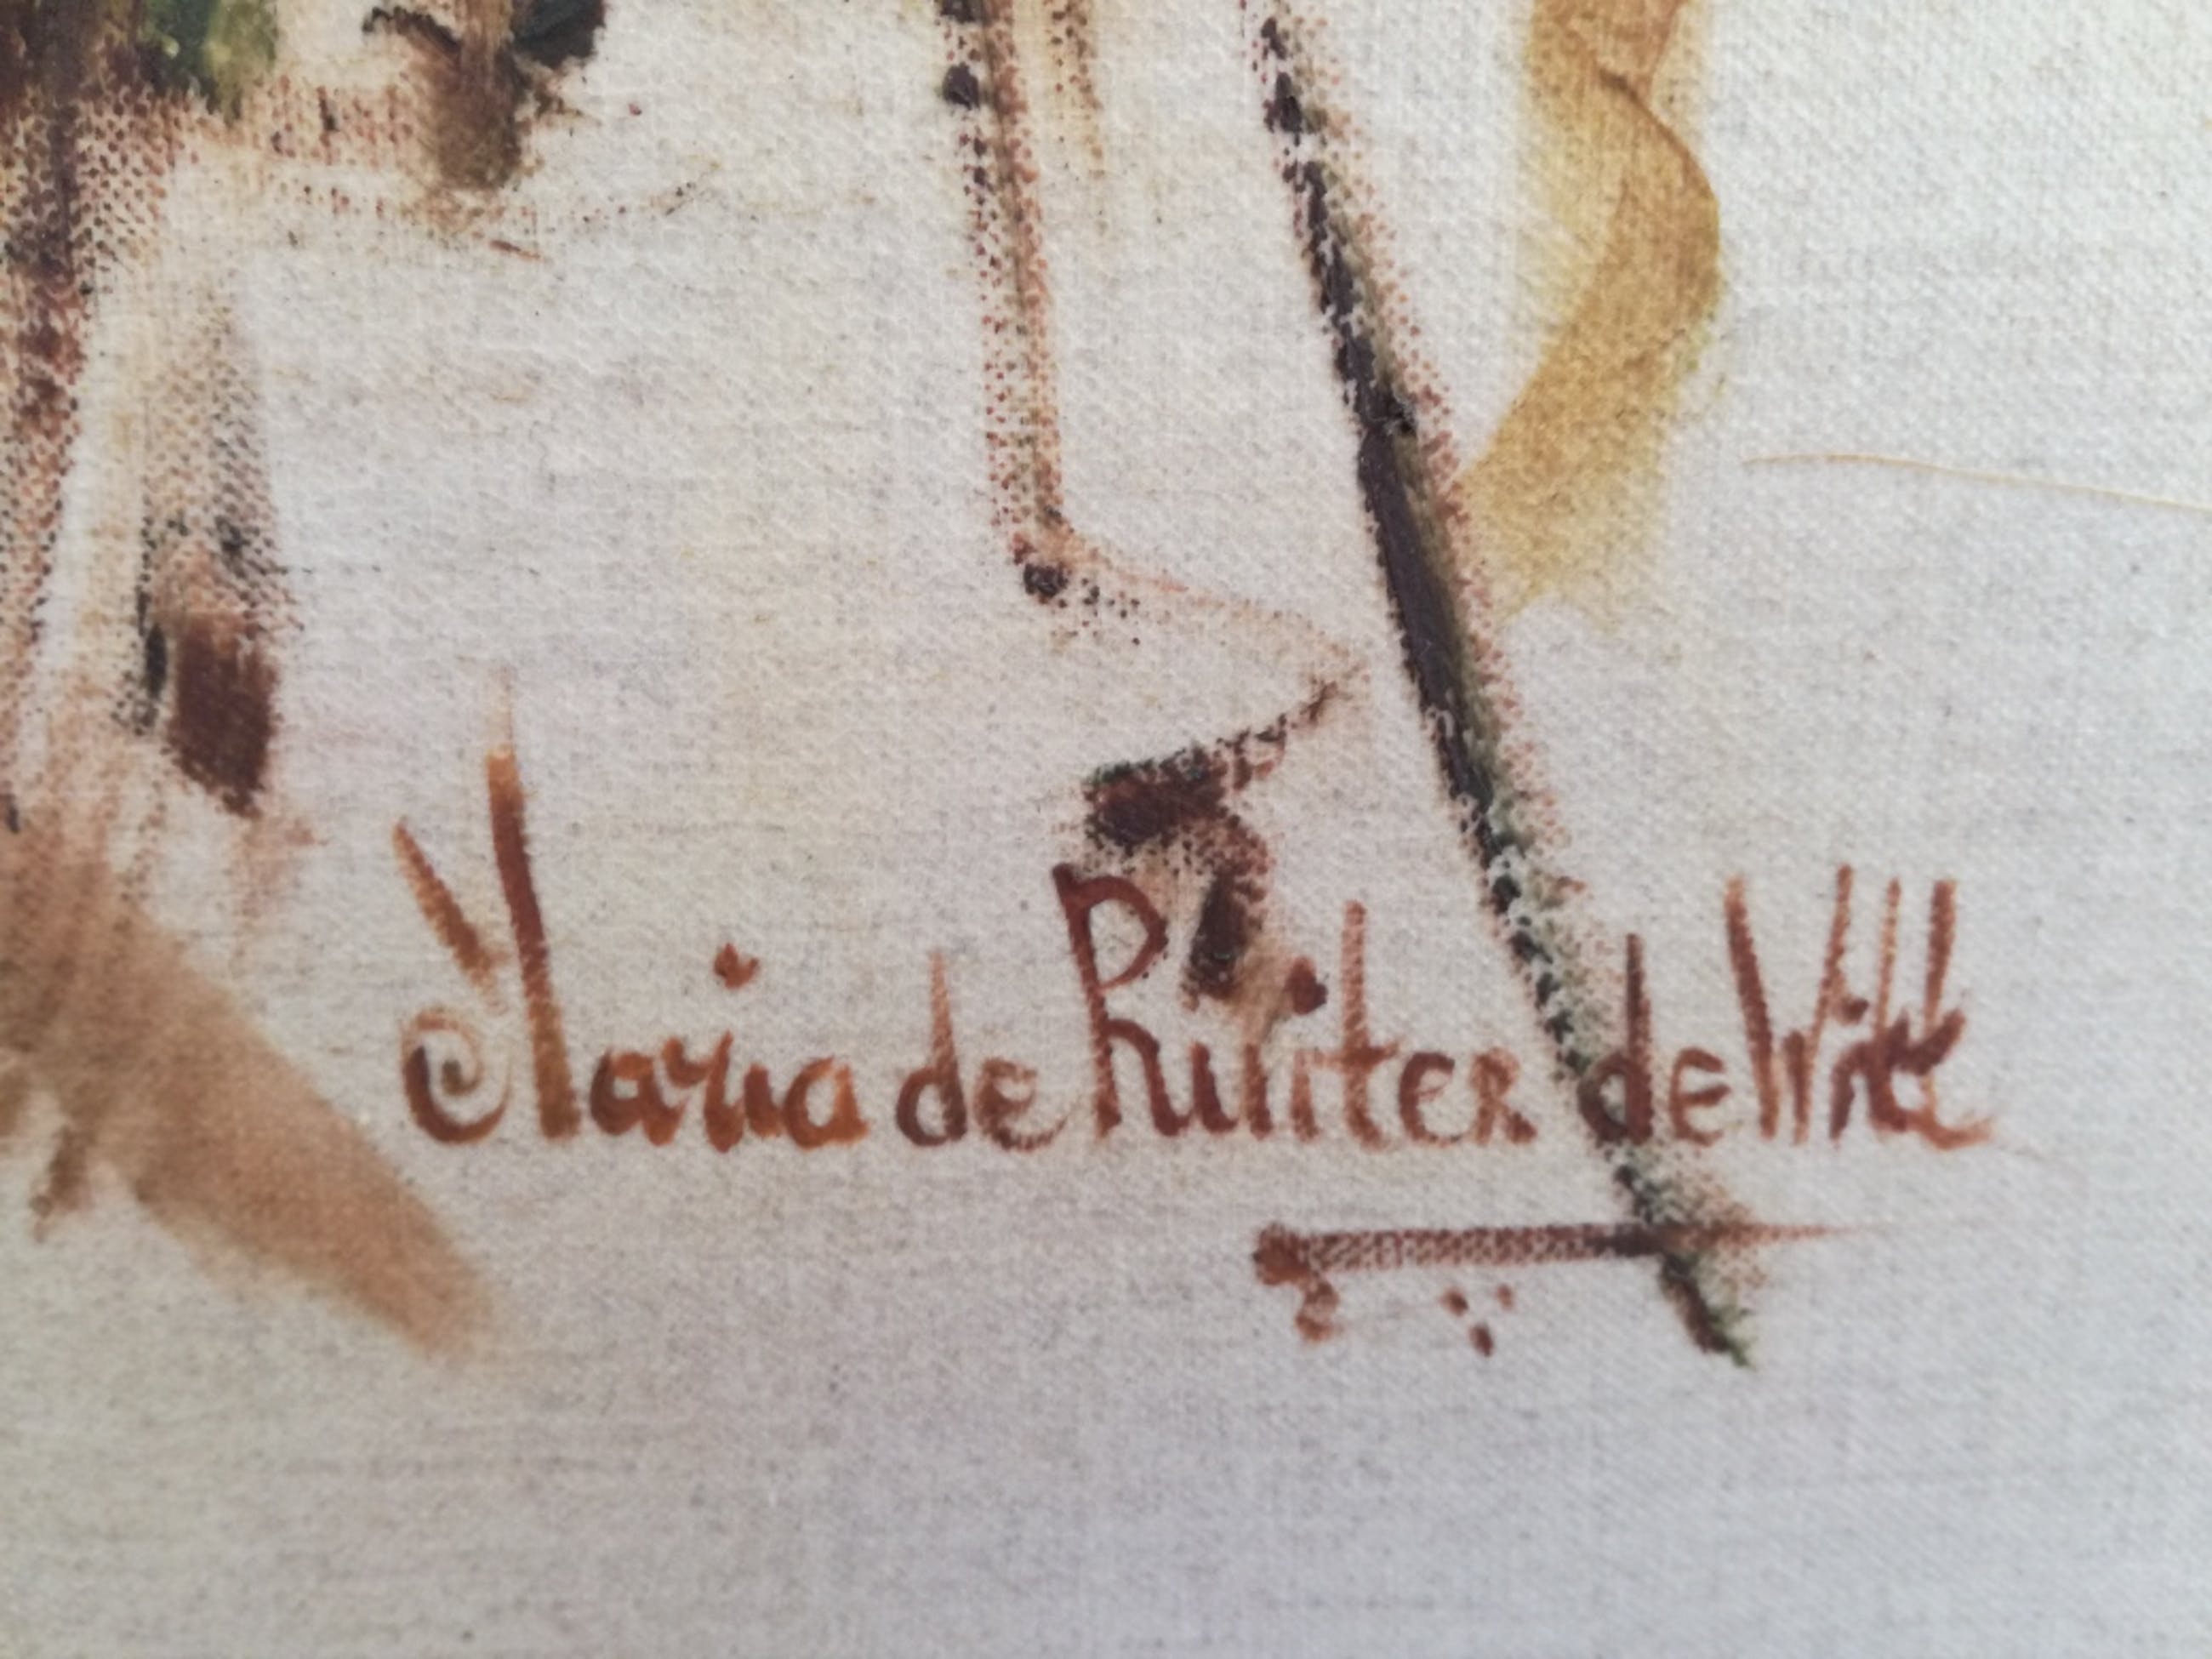 Maria de Ruiiter de Witt